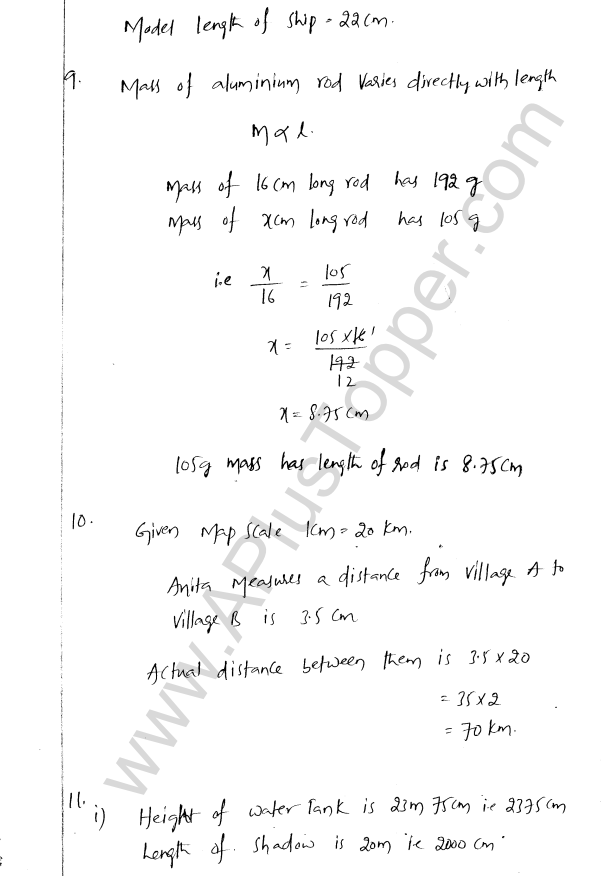 Model length of ship = 22cm.
9. Mass of aluminium rod varies directly with length
M ∝ l.
Mass of 16cm long rod has 192 g
Mass of xcm long rod has 105 g
i.e x/16 = 105/192
x = 105 × 16 1 / 192 12
x = 8.75 cm
105g mass has length of rod is 8.75cm
10. Given Map scale 1cm = 20 km.
Anita Measures a distance from village A to
village B is 3.5 cm
Actual distance between them is 3.5 × 20
= 35 × 2
= 70 km.
11. i) Height of water Tank is 23m 75cm i.e 2375cm
Length of shadow is 20m i.e 2000 cm.
www.APlusTopper.com